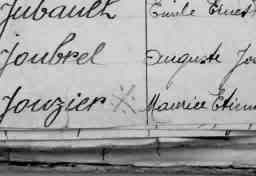 Jubault Emile Ernest
Joubrel Auguste Jou
Jouzier Maurice Etienne